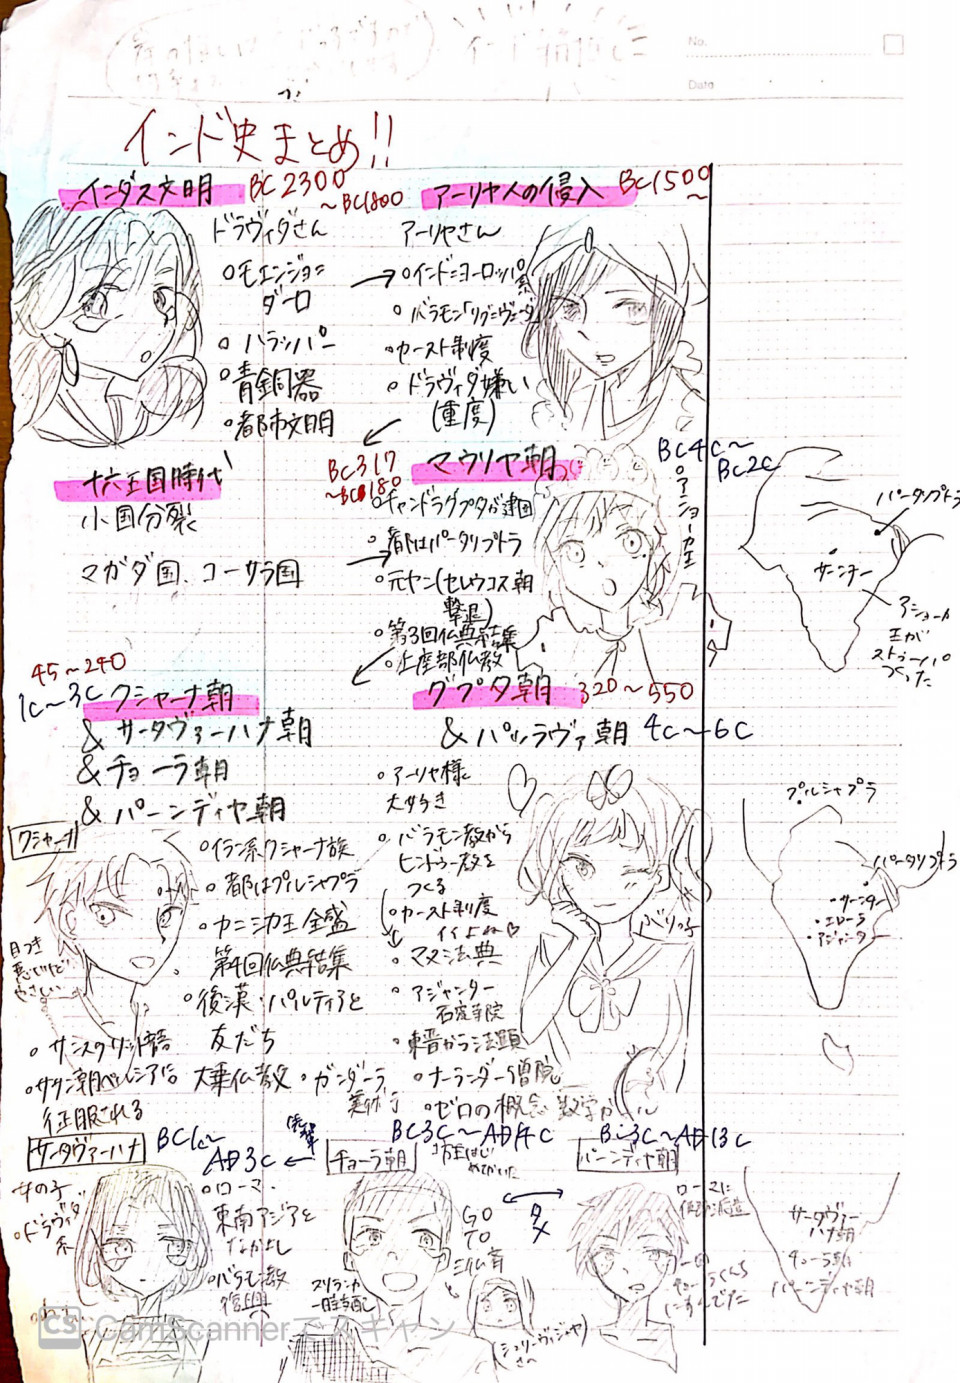 No.
Date
インド史まとめ!!
インダス文明 BC2300
~BC1800
ドラヴィダさん
○モエンジョ=
ダーロ
○ハラッパー
○青銅器
○都市文明
アーリヤ人の侵入 BC1500
~
アーリヤさん
○インド=ヨーロッパ系
○バラモン「リグ=ヴェーダ」
○カースト制度
○ドラヴィダ嫌い
(重度)
十六王国時代
小国分裂
マガダ国、コーサラ国
BC317
~BC180
マウリヤ朝
BC4C~
BC2C
○チャンドラグプタが建国
○都はパータリプトラ
○元ヤン(セレウコス朝
撃退)
○第3回仏典結集
○上座部仏教
○アショーカ王
パータリプトラ
サーンチー
アショーカ
王が
ストゥーパ
つくった
45~240
1C~3C クシャーナ朝
&サータヴァーハナ朝
&チョーラ朝
&パーンディヤ朝
クシャーナ
○イラン系クシャーナ族
○都はプルシャプラ
○カニシカ王全盛
第4回仏典結集
○後漢・パルティアと
友だち
目つき
悪いけど
やさしい
○サンスクリット語
○ササン朝ペルシアに
征服される
大乗仏教 ○ガンダーラ
美術
グプタ朝 320~550
&パッラヴァ朝 4C~6C
○アーリヤ様
大好き
○バラモン教から
ヒンドゥー教を
つくる
○カースト制度
イイよね♡
○マヌ法典
○アジャンター
石窟寺院
○東晋から法顕
○ナーランダー僧院
○ゼロの概念
ぶりっ子
プルシャプラ
パータリプトラ
・サーンチー
・エローラ
・アジャンター
サータヴァーハナ BC1C~
AD3C
女の子
○ドラヴィダ
系
○ローマ・
東南アジアと
なかよし
○バラモン教
復興
BC3C~AD14C
チョーラ朝
GO
TO
スリランカ
一時支配
(シュリーヴィジャヤ)
BC3C~AD13C
パーンディヤ朝
ローマに
サータヴァー
ハナ朝
チョーラ朝
パーンディヤ朝
CS CamScannerでスキャン